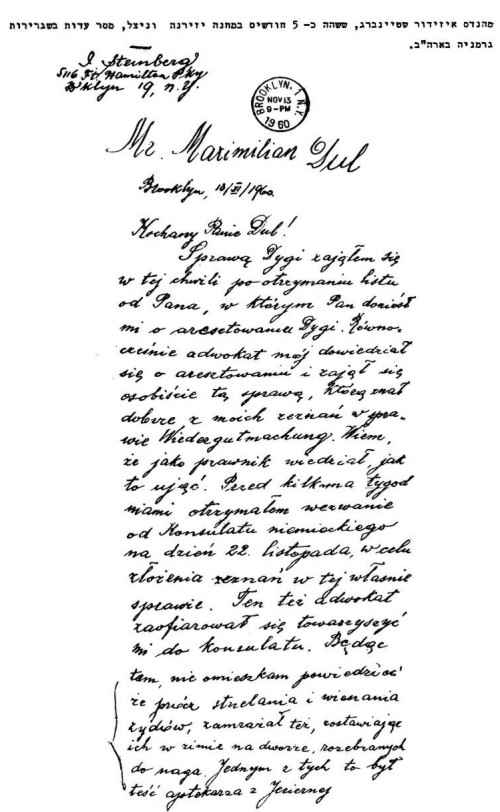 מהנדס איזידור שטיינברג, ששהה כ- 5 חודשים במחנה יזירנה וניצל, מסר עדות בשגרירות
גרמניה בארה"ב.
I. Steinberg
5116 Ft. Hamilton Pky
Bklyn 19, N.Y.
BROOKLYN, 1 N.Y.
NOV 13
9-PM
1960
Mr. Maximilian Dul
Brooklyn, 13/XI/1960.
Kochany Panie Dul!
Sprawą Dygi zająłem się
w tej chwili po otrzymaniu listu
od Pana, w którym Pan doniósł
mi o aresztowaniu Dygi. Równo-
cześnie adwokat mój dowiedział
się o aresztowaniu i zajął się
osobiście tą sprawą, którą znał
dobrze z moich zeznań w spra-
wie Wiedergutmachung. Wiem,
że jako prawnik wiedział, jak
to ująć. Przed kilkma tygod
niami otrzymałem wezwanie
od Konsulatu niemieckiego
na dzień 22. listopada, w celu
złożenia zeznań w tej właśnie
sprawie. Ten też adwokat
zaofiarował się towarzyszyć
mi do konsulatu. Będąc
tam, nie omieszkam powiedzieć
że prócz strzelania i wieszania
żydów, zamrażał też, zostawiając
ich w zimie na dworze, rozebranych
do naga. Jednym z tych to był
teść aptekarza z Jeziernej